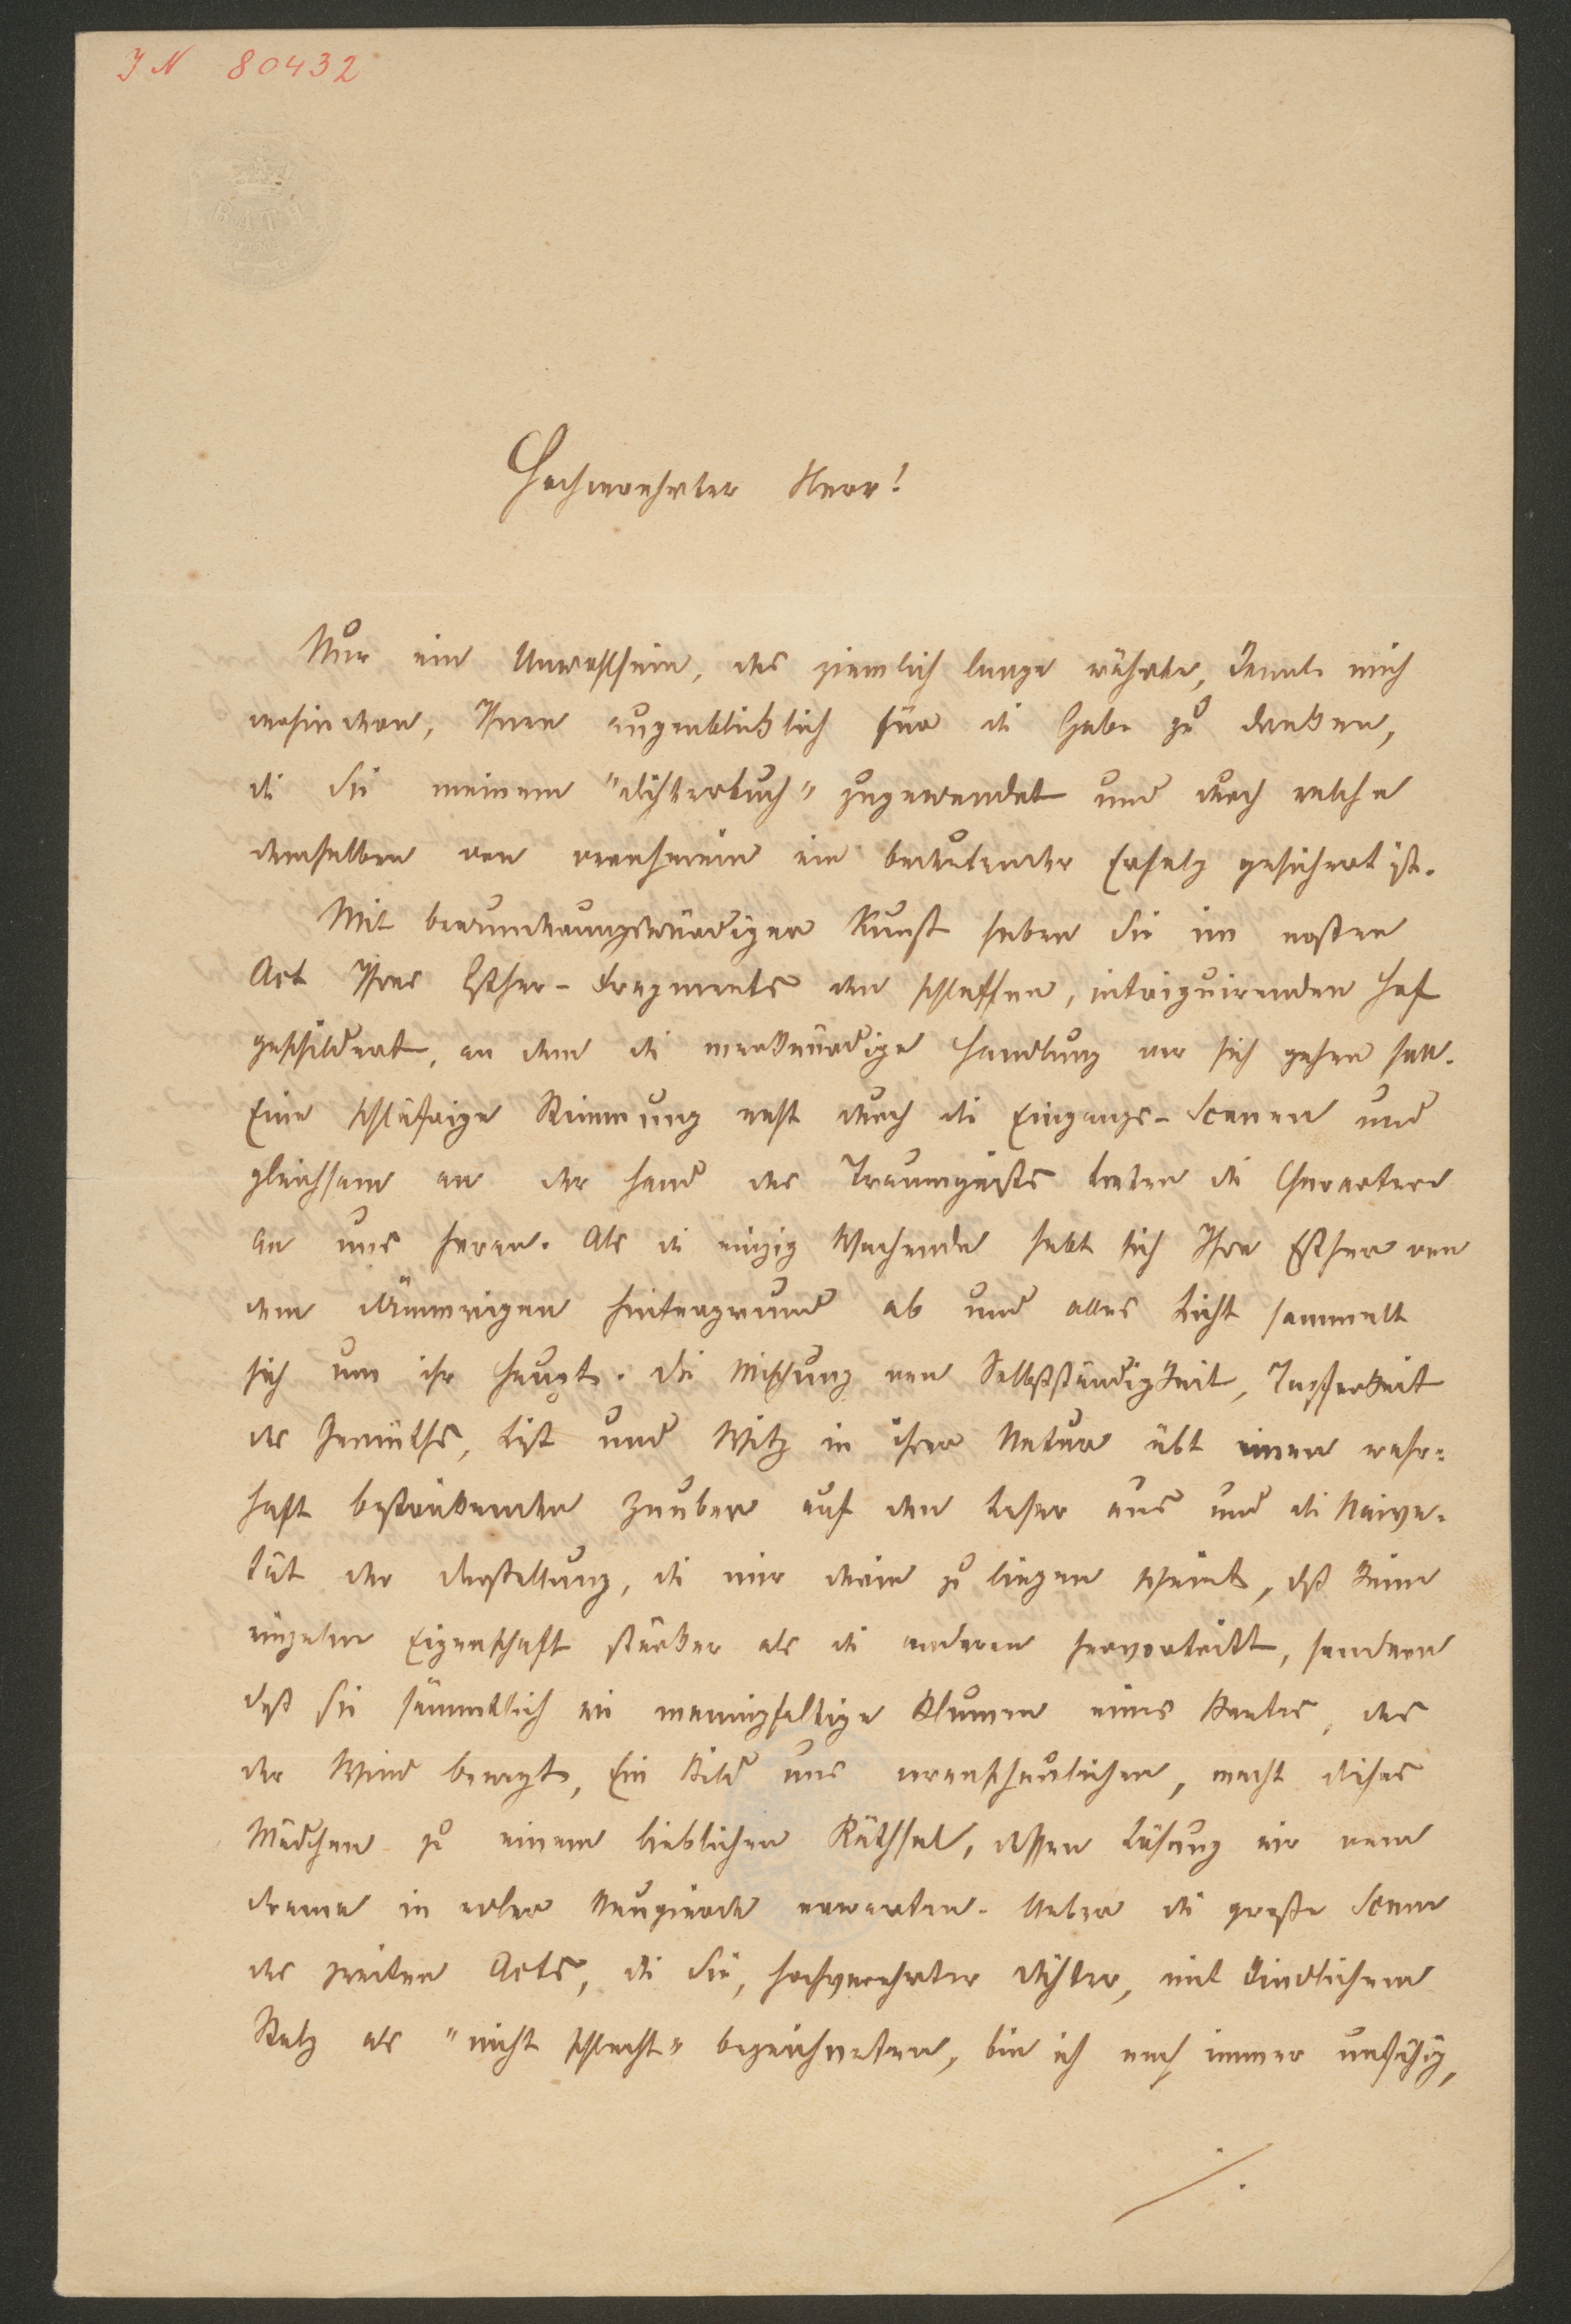 IN 80432
BATH
Hochverehrter Herr!
Nur ein Unwohlsein, das ziemlich lange währte, konnte mich
verhindern, Ihnen augenblicklich für die Gabe zu danken,
die Sie meinem "Dichterbuch" zugewendet und durch welche
demselben von vornherein ein bedeutender Erfolg gesichert ist.
Mit bewunderungswürdiger Kunst haben Sie im ersten
Act Ihres Esther-Fragments den schlaffen, intriguirenden Hof
geschildert, an dem die merkwürdige Handlung vor sich gehen soll.
Eine schläfrige Stimmung weht durch die Eingangs-Scenen und
gleichsam an der Hand des Traumgeists treten die Charactere
an uns heran. Als die einzig Wachende hebt sich Ihre Esther von
dem dämmerigen Hintergrund ab und alles Licht sammelt
sich um ihr Haupt. Die Mischung von Selbstständigkeit, Tapferkeit
des Gemüths, List und Witz in ihrer Natur übt einen wahr-
haft bestrickenden Zauber auf den Leser aus und die Naive-
tät der Darstellung, die mir darin zu liegen scheint, daß keine
einzelne Eigenschaft stärker als die anderen hervortritt, sondern
daß sie sämmtlich wie mannigfaltige Blumen eines Beetes, das
der Wind bewegt, Ein Bild uns veranschaulichen, macht dieses
Mädchen zu einem lieblichen Räthsel, dessen Lösung wir vom
Drama in edler Neugierde erwarten. Ueber die große Scene
des zweiten Acts, die Sie, hochverehrter Dichter, mit kindlichem
Stolz als "nicht schlecht" bezeichneten, bin ich noch immer unfähig,
./.